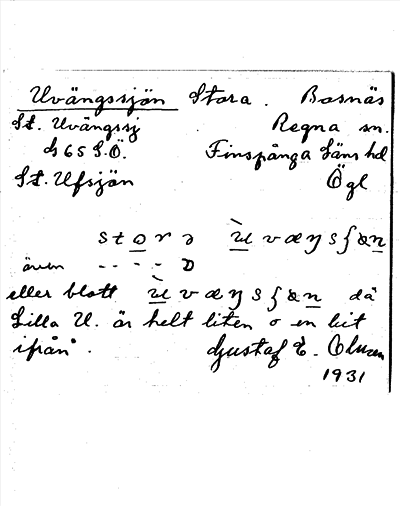 Uvängssjön Stora. Bosnäs
St. Uvängssj Regna sn.
G 65 S.Ö. Finspånga Läns hd
St. Ufsjön Ögl
stora ù væŋsʃøn
även - - - - ɔ
eller blott ù væŋsʃøn då
Lilla U. är helt liten o en bit
ifrån. Gustaf E.
1931